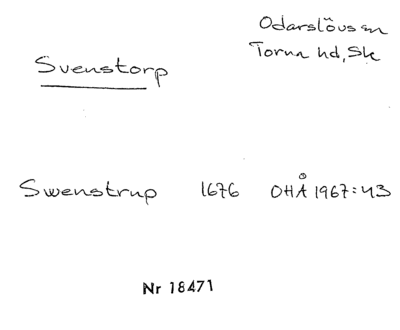 Odarslövs sn
Torna hd, Sk
Svenstorp
Swenstrup 1676 OHÅ 1967:43
Nr 18471